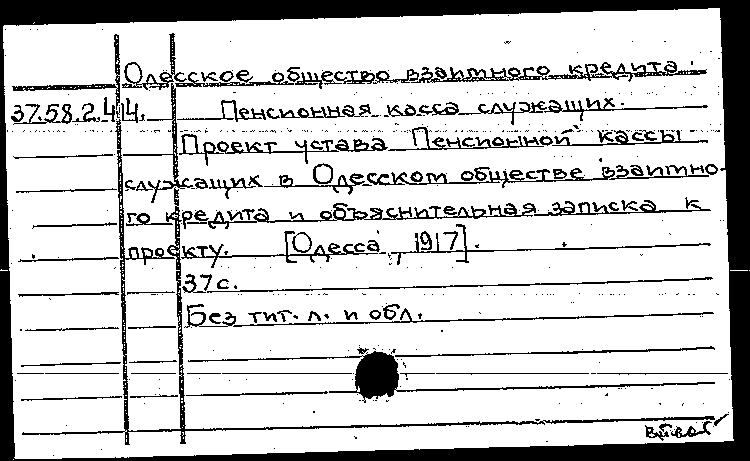 Одесское общество взаимного кредита.
37.58.2.44. Пенсионная касса служащих.
Проект устава Пенсионной кассы
служащих в Одесском обществе взаимно-
го кредита и объяснительная записка к
проекту. [Одесса, 1917].
37 с.
Без тит. л. и обл.